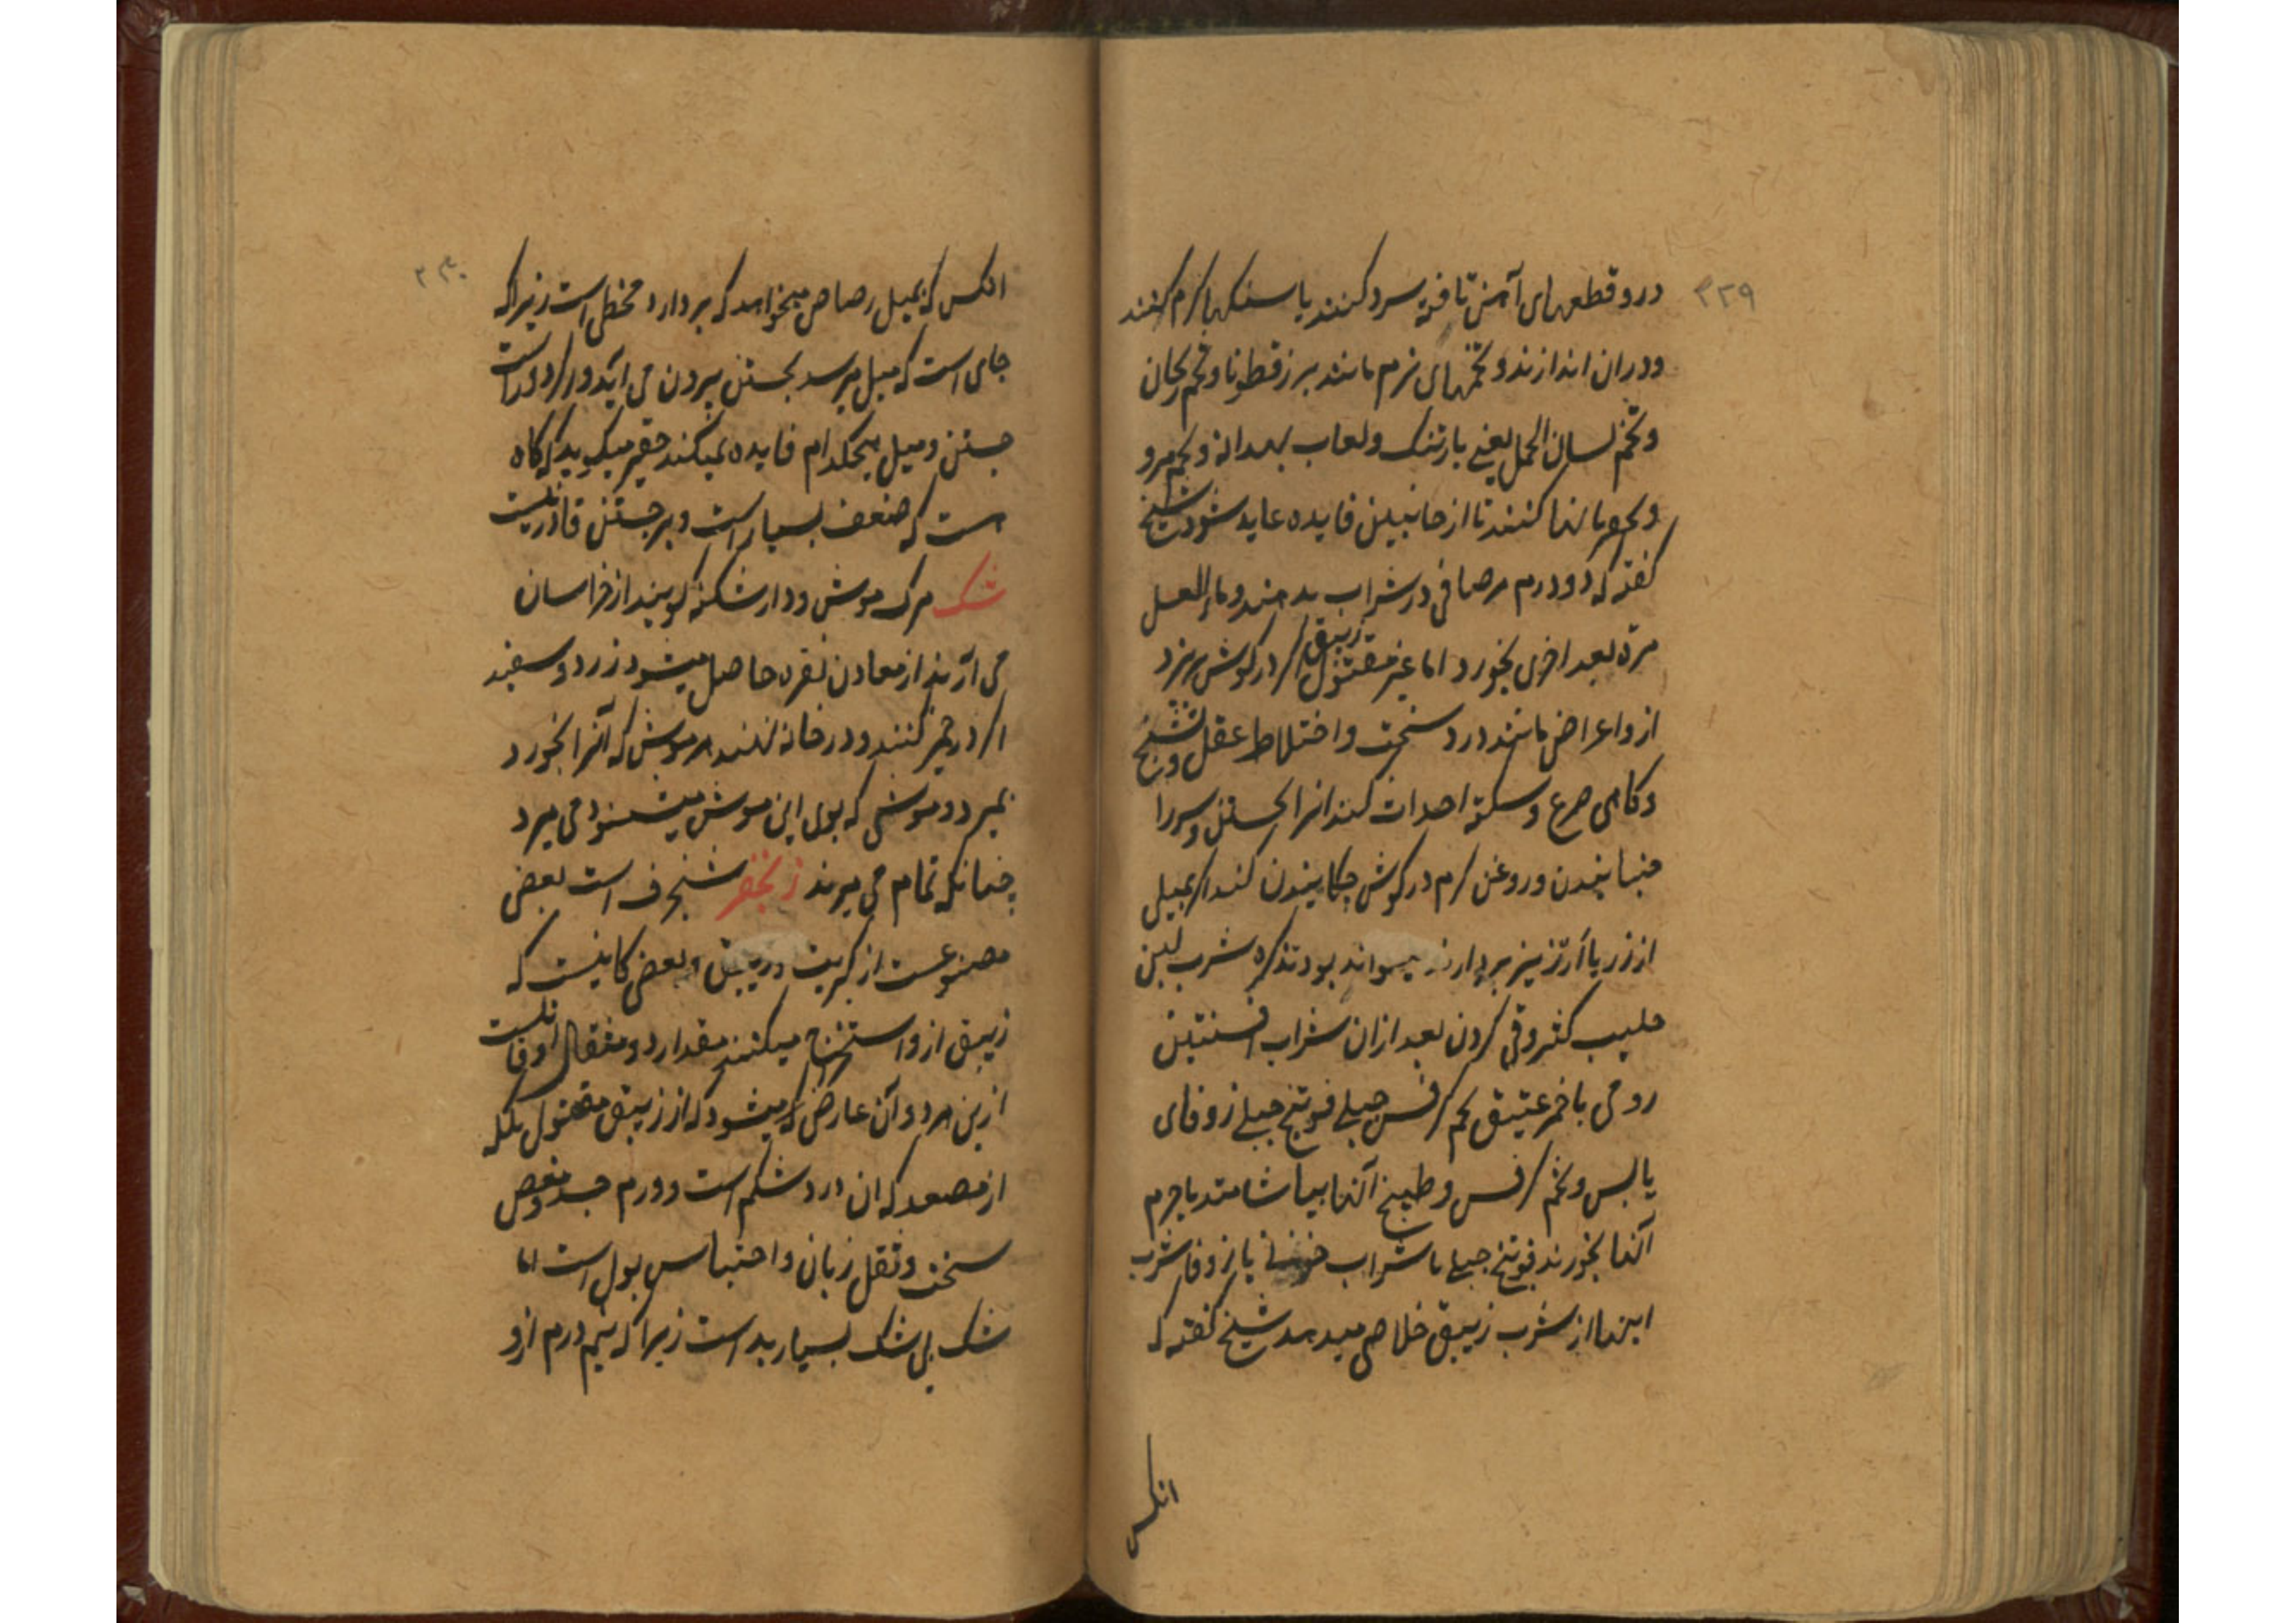 ۳۲۹
درو قطعهای آهن تافته سرد کنند یا سنکها کرم کنند
ودران اندازند و تخمهای نرم مانند بزرقطونا و تخم ریحان
و تخم لسان الحمل یعنے بارتنک و لعاب بهدانه و تخم مرو
کنند تا از جانبین فایده عاید شود شیخ
کفته که دو درم مرصافی در شراب بدهند و ماء العسل
مرة بعد اخری بخورد اما غیر مقتول زیبق اکر در کوش بریزد
ازو اعراض مانند درد سخت و اختلاط عقل و تشنج
و کاهی صرع و سکته احداث کند انرا بجستن و سررا
جنبانیدن و روغن کرم در کوش چکانیدن کنند اکر بمیل
از زر یا ارزیز بردارند میتواند بود تذکره شرب لبن
حلیب کثیر و قی کردن بعد ازان شراب افسنتین
رومی با خمر عتیق تخم کرفس جبلے فوتنج جبلے زوفای
یابس و تخم کرفس و طبیخ آنها بیاشامند یا جرم
آنها بخورند فوتنج جبلے با شراب یا زوفا شرب
اینها از شرب زیبق خلاص میدهد شیخ کفته که
انکس
۳۳۰
انکس که بمیل رصاص میخواهد که بردارد مخطی است زیرا که
جای است که میل میرسد بجستن بیرون می آید و اکر دورست
جستن و میل هیچکدام فایده نمیکند حقیر میکوید که کاه
است که ضعف بسیار است و بر جستن قادر نیست
شک مرک موش و دارشکنه کویند از خراسان
می آرند از معادن نقره حاصل میشود زرد و سفید
اکر در خمیر کنند و در خانه نهند هر موش که آنرا بخورد
بمیرد و موشی که بوی این موش میشنود می میرد
چنانکه تمام می میرند زنجفر شنجرف است بعض
مصنوعست از کبریت و زیبق و بعض کانیست که
زیبق ازو استخراج میکنند مقدار دو مثقال
ازین هر دو آن عارض میشود که از زیبق مقتول بلکه
از مصعد که ان درد شکم است و ورم جسد و مغص
سخت و ثقل زبان و احتباس بول است اما
شک بی شک بسیار بد است زیرا که نیم درم ازو